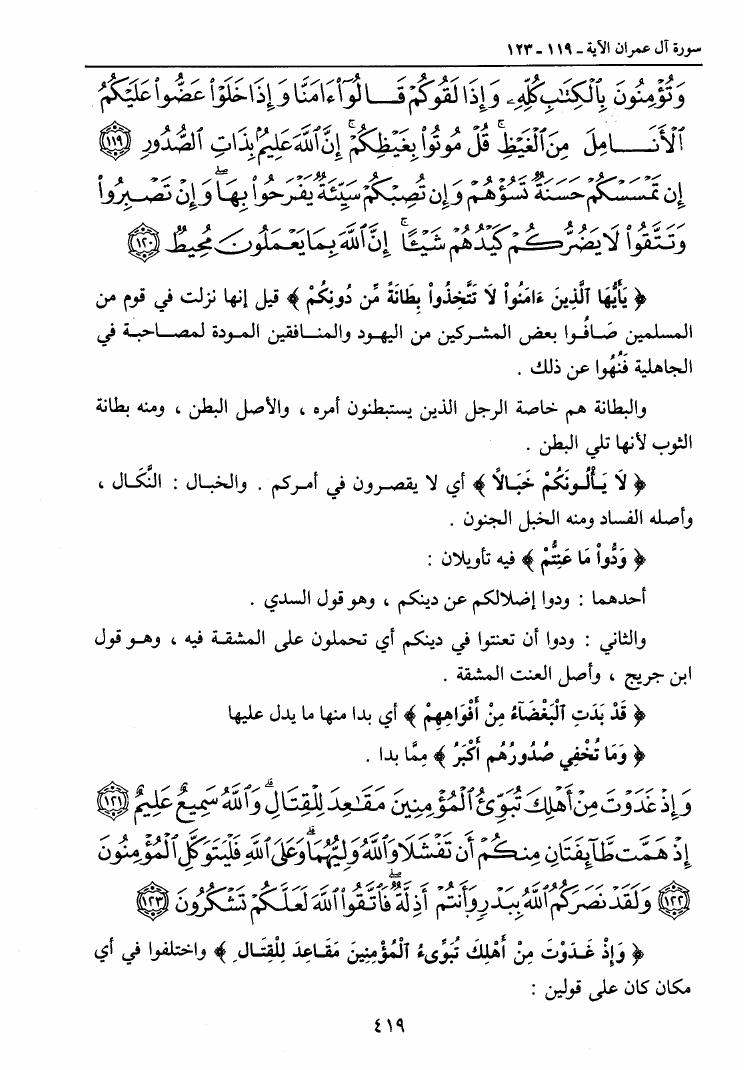 سورة آل عمران الآية ـ ١١٩ ـ ١٢٣
وَتُؤْمِنُونَ بِالْكِتَٰبِ كُلِّهِۦ وَإِذَا لَقُوكُمْ قَالُوٓا۟ ءَامَنَّا وَإِذَا خَلَوْا۟ عَضُّوا۟ عَلَيْكُمُ
الْأَنَامِلَ مِنَ الْغَيْظِ ۚ قُلْ مُوتُوا۟ بِغَيْظِكُمْ ۗ إِنَّ اللَّهَ عَلِيمٌۢ بِذَاتِ الصُّدُورِ ١١٩
إِن تَمْسَسْكُمْ حَسَنَةٌ تَسُؤْهُمْ وَإِن تُصِبْكُمْ سَيِّئَةٌ يَفْرَحُوا۟ بِهَا ۖ وَإِن تَصْبِرُوا۟
وَتَتَّقُوا۟ لَا يَضُرُّكُمْ كَيْدُهُمْ شَيْـًٔا ۗ إِنَّ اللَّهَ بِمَا يَعْمَلُونَ مُحِيطٌ ١٢٠
﴿ يَٰٓأَيُّهَا ٱلَّذِينَ ءَامَنُواْ لَا تَتَّخِذُواْ بِطَانَةً مِّن دُونِكُمْ ﴾ قيل إنها نزلت في قوم من
المسلمين صَافُوا بعض المشركين من اليهود والمنافقين المودة لمصاحبة في
الجاهلية فَنُهُوا عن ذلك .
والبطانة هم خاصة الرجل الذين يستبطنون أمره ، والأصل البطن ، ومنه بطانة
الثوب لأنها تلي البطن .
﴿ لَا يَأْلُونَكُمْ خَبَالًا ﴾ أي لا يقصرون في أمركم . والخبال : النَّكَال ،
وأصله الفساد ومنه الخبل الجنون .
﴿ وَدُّواْ مَا عَنِتُّمْ ﴾ فيه تأويلان :
أحدهما : ودوا إضلالكم عن دينكم ، وهو قول السدي .
والثاني : ودوا أن تعنتوا في دينكم أي تحملون على المشقة فيه ، وهو قول
ابن جريج ، وأصل العنت المشقة .
﴿ قَدْ بَدَتِ ٱلْبَغْضَآءُ مِنْ أَفْوَاهِهِمْ ﴾ أي بدا منها ما يدل عليها
﴿ وَمَا تُخْفِي صُدُورُهُم أَكْبَرُ ﴾ مِمَّا بدا .
وَإِذْ غَدَوْتَ مِنْ أَهْلِكَ تُبَوِّئُ الْمُؤْمِنِينَ مَقَٰعِدَ لِلْقِتَالِ ۗ وَاللَّهُ سَمِيعٌ عَلِيمٌ ١٢١
إِذْ هَمَّت طَّآئِفَتَانِ مِنكُمْ أَن تَفْشَلَا وَاللَّهُ وَلِيُّهُمَا ۗ وَعَلَى اللَّهِ فَلْيَتَوَكَّلِ الْمُؤْمِنُونَ
١٢٢ وَلَقَدْ نَصَرَكُمُ اللَّهُ بِبَدْرٍ وَأَنتُمْ أَذِلَّةٌ ۖ فَاتَّقُوا۟ اللَّهَ لَعَلَّكُمْ تَشْكُرُونَ ١٢٣
﴿ وَإِذْ غَدَوْتَ مِنْ أَهْلِكَ تُبَوِّىءُ ٱلْمُؤْمِنِينَ مَقَاعِدَ لِلْقِتَالِ ﴾ واختلفوا في أي
مكان كان على قولين :
٤١٩